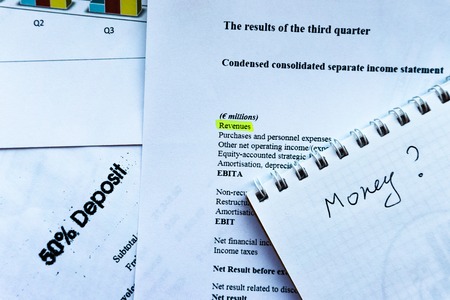 Q2
Q3
50% Deposit
Subtotal
The results of the third quarter
Condensed consolidated separate income statement
(€ millions)
Revenues
Purchases and personnel expenses
Other net operating income
Equity-accounted strategic
Amortisation,
EBITA
Amortisatio
EBIT
Net financial
Income taxes
Net Result before
Net result related to
Net result
Money?